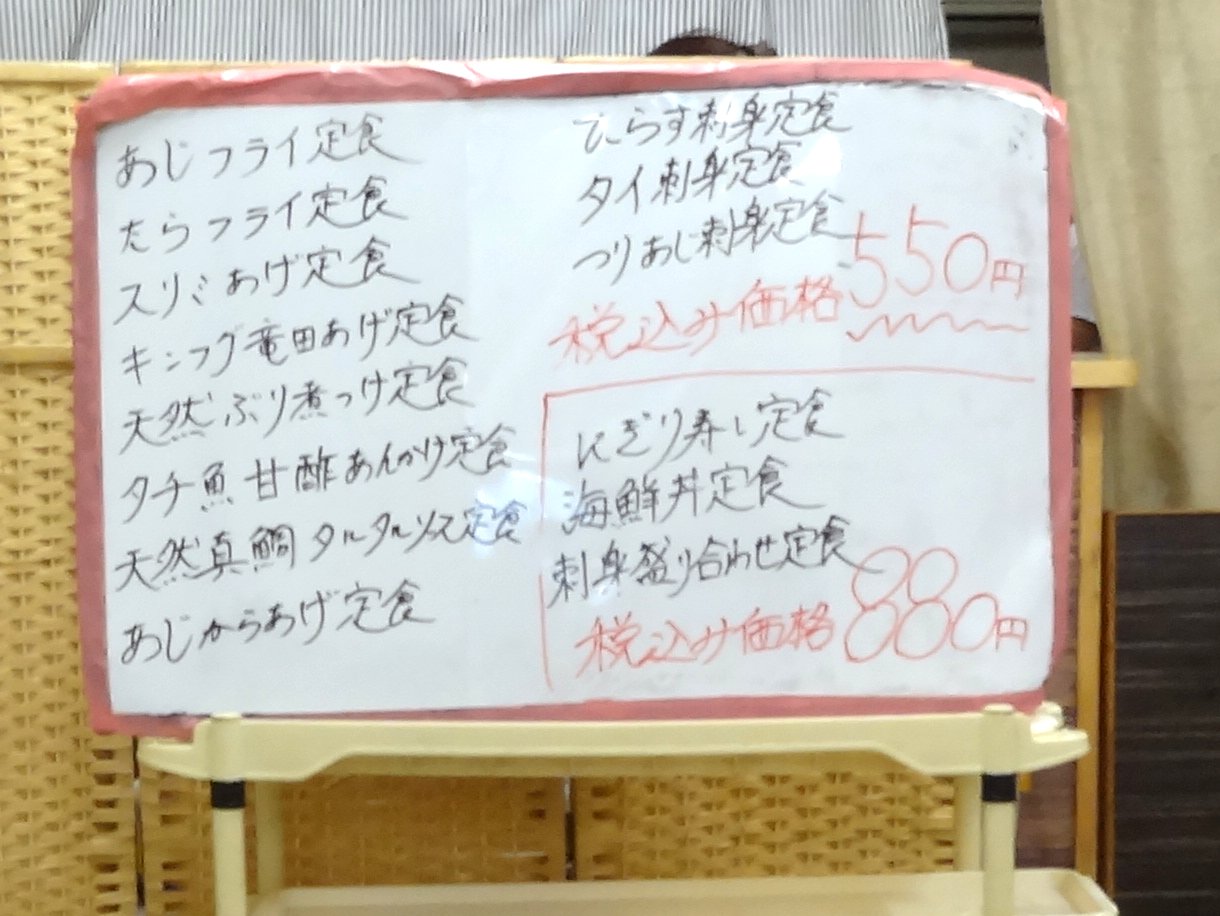 あじフライ定食
たらフライ定食
スリミあげ定食
キング竜田あげ定食
天然ぶり煮つけ定食
タチ魚甘酢あんかけ定食
天然真鯛タルタルソース定食
あじからあげ定食
ひらす刺身定食
タイ刺身定食
つりあじ刺身定食
税込み価格550円
にぎり寿し定食
海鮮丼定食
刺身盛り合わせ定食
税込み価格880円